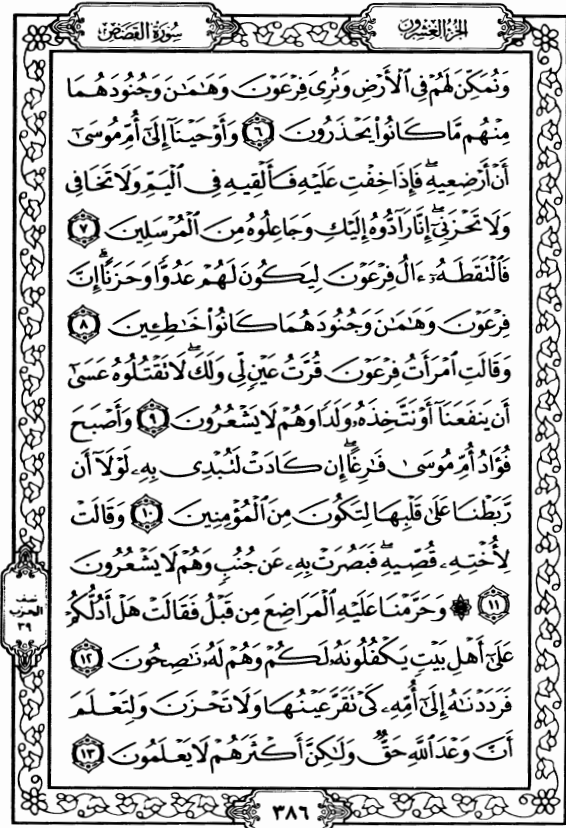 سُورَةُ القَصَصِ
الجزء العشرون
وَنُمَكِّنَ لَهُمْ فِي ٱلْأَرْضِ وَنُرِيَ فِرْعَوْنَ وَهَٰمَٰنَ وَجُنُودَهُمَا
مِنْهُم مَّا كَانُوا۟ يَحْذَرُونَ ٦ وَأَوْحَيْنَآ إِلَىٰٓ أُمِّ مُوسَىٰٓ
أَنْ أَرْضِعِيهِ ۖ فَإِذَا خِفْتِ عَلَيْهِ فَأَلْقِيهِ فِي ٱلْيَمِّ وَلَا تَخَافِي
وَلَا تَحْزَنِيٓ ۖ إِنَّا رَآدُّوهُ إِلَيْكِ وَجَاعِلُوهُ مِنَ ٱلْمُرْسَلِينَ ٧
فَٱلْتَقَطَهُۥٓ ءَالُ فِرْعَوْنَ لِيَكُونَ لَهُمْ عَدُوًّا وَحَزَنًا ۗ إِنَّ
فِرْعَوْنَ وَهَٰمَٰنَ وَجُنُودَهُمَا كَانُوا۟ خَٰطِـِٔينَ ٨
وَقَالَتِ ٱمْرَأَتُ فِرْعَوْنَ قُرَّتُ عَيْنٍ لِّي وَلَكَ ۖ لَا تَقْتُلُوهُ عَسَىٰٓ
أَن يَنفَعَنَآ أَوْ نَتَّخِذَهُۥ وَلَدًا وَهُمْ لَا يَشْعُرُونَ ٩ وَأَصْبَحَ
فُؤَادُ أُمِّ مُوسَىٰ فَٰرِغًا ۖ إِن كَادَتْ لَتُبْدِي بِهِۦ لَوْلَآ أَن
رَّبَطْنَا عَلَىٰ قَلْبِهَا لِتَكُونَ مِنَ ٱلْمُؤْمِنِينَ ١٠ وَقَالَتْ
لِأُخْتِهِۦ قُصِّيهِ ۖ فَبَصُرَتْ بِهِۦ عَن جُنُبٍ وَهُمْ لَا يَشْعُرُونَ
١١ ۞ وَحَرَّمْنَا عَلَيْهِ ٱلْمَرَاضِعَ مِن قَبْلُ فَقَالَتْ هَلْ أَدُلُّكُمْ
عَلَىٰٓ أَهْلِ بَيْتٍ يَكْفُلُونَهُۥ لَكُمْ وَهُمْ لَهُۥ نَٰصِحُونَ ١٢
فَرَدَدْنَٰهُ إِلَىٰٓ أُمِّهِۦ كَيْ تَقَرَّ عَيْنُهَا وَلَا تَحْزَنَ وَلِتَعْلَمَ
أَنَّ وَعْدَ ٱللَّهِ حَقٌّ وَلَٰكِنَّ أَكْثَرَهُمْ لَا يَعْلَمُونَ ١٣
نصف
الحزب
٣٩
٣٨٦